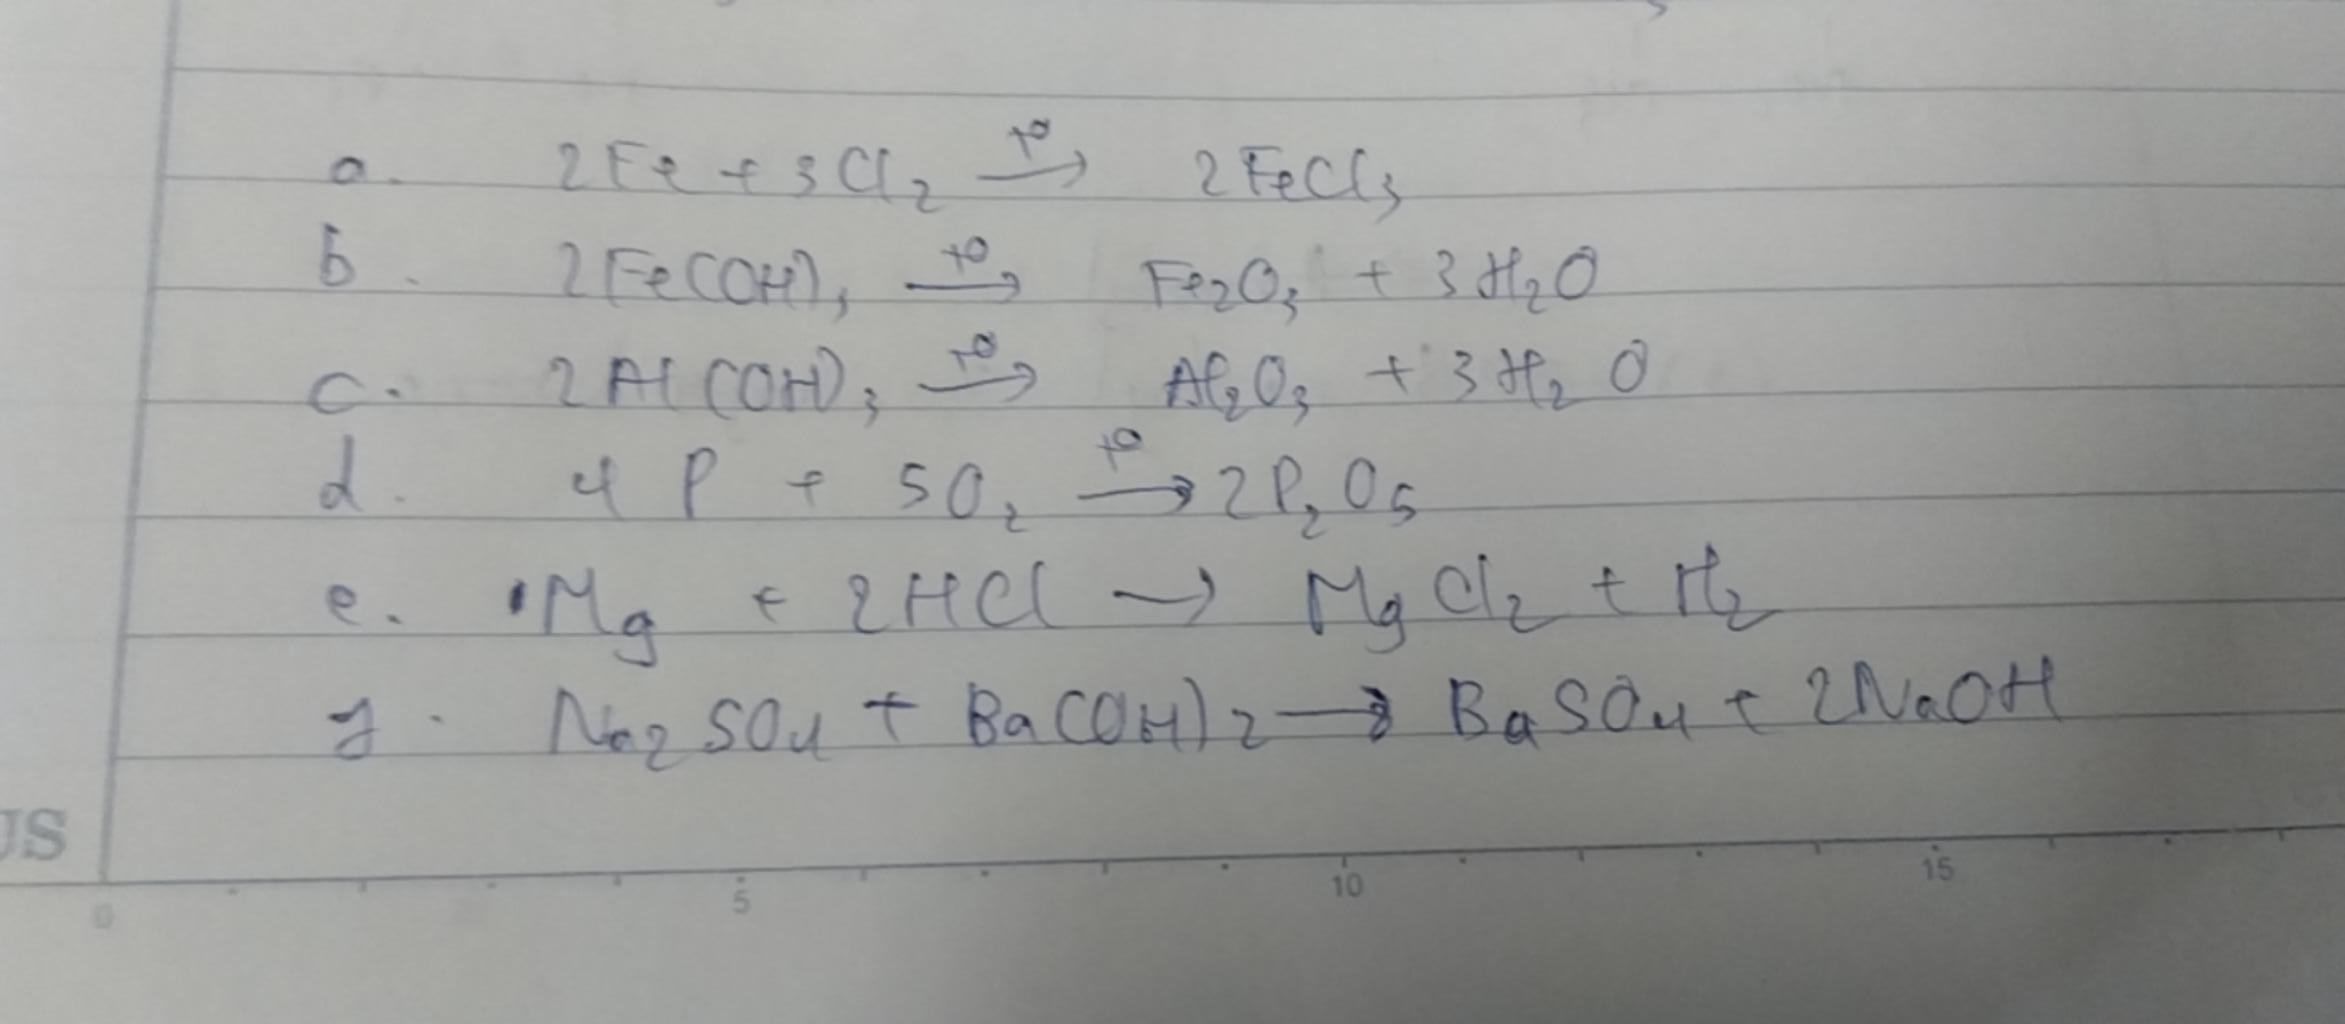 a. 2Fe + 3Cl₂ —t°→ 2FeCl₃
b. 2Fe(OH)₃ —t°→ Fe₂O₃ + 3H₂O
c. 2Al(OH)₃ —t°→ Al₂O₃ + 3H₂O
d. 4P + 5O₂ —t°→ 2P₂O₅
e. Mg + 2HCl → MgCl₂ + H₂
g. Na₂SO₄ + Ba(OH)₂ → BaSO₄ + 2NaOH
US
0 5 10 15